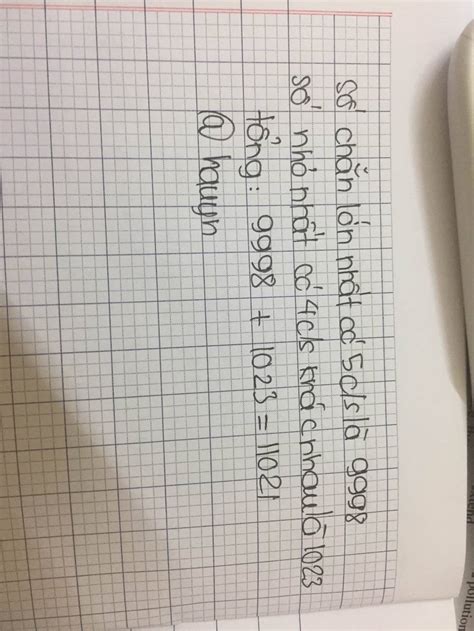 số chẵn lớn nhất có 5 c/s là 9998
số nhỏ nhất có 4 c/s khác nhau là 1023
tổng: 9998 + 1023 = 11021
@hauyn
pollution